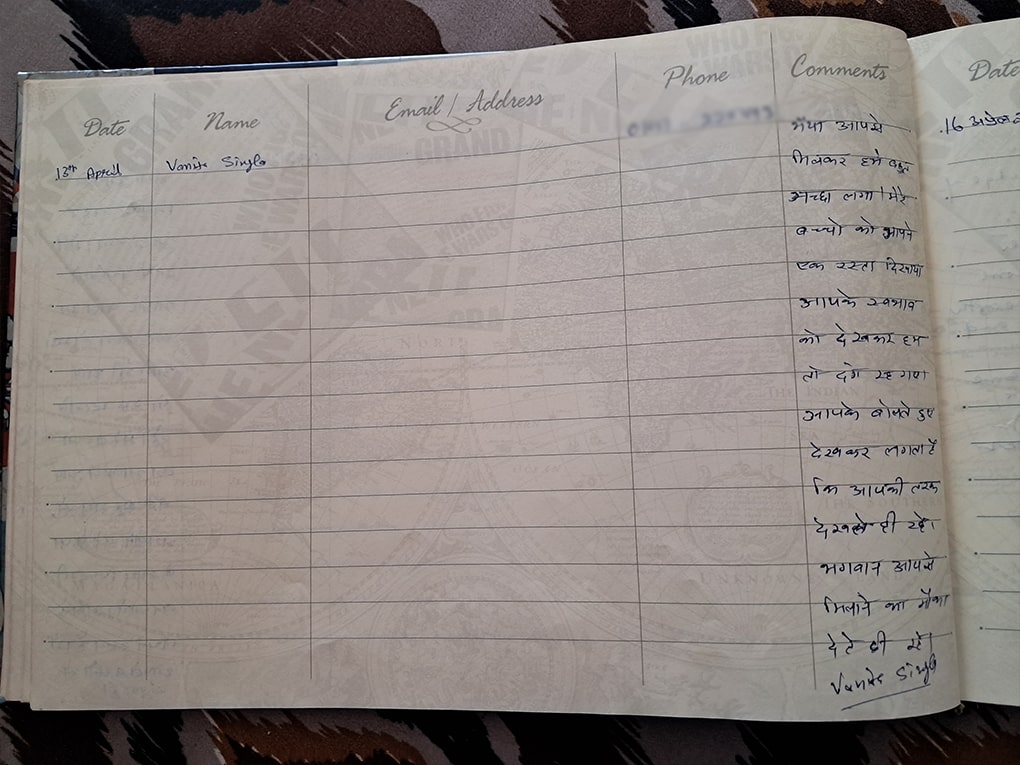 Date Name Email / Address Phone Comments Date
13th April Vanita Singla
भैया आपसे
16 अप्रैल
मिलकर हमे बहुत
अच्छा लगा। मेरे
बच्चो को आपने
एक रस्ता दिखाया
आपके स्वभाव
को देखकर हम
तो दंग रह गए।
आपके बोलते हुए
देखकर लगता है
कि आपकी तरफ
देखते ही रहे।
भगवान आपसे
मिलाने का मौका
देते ही रहे।
Vanita Singla